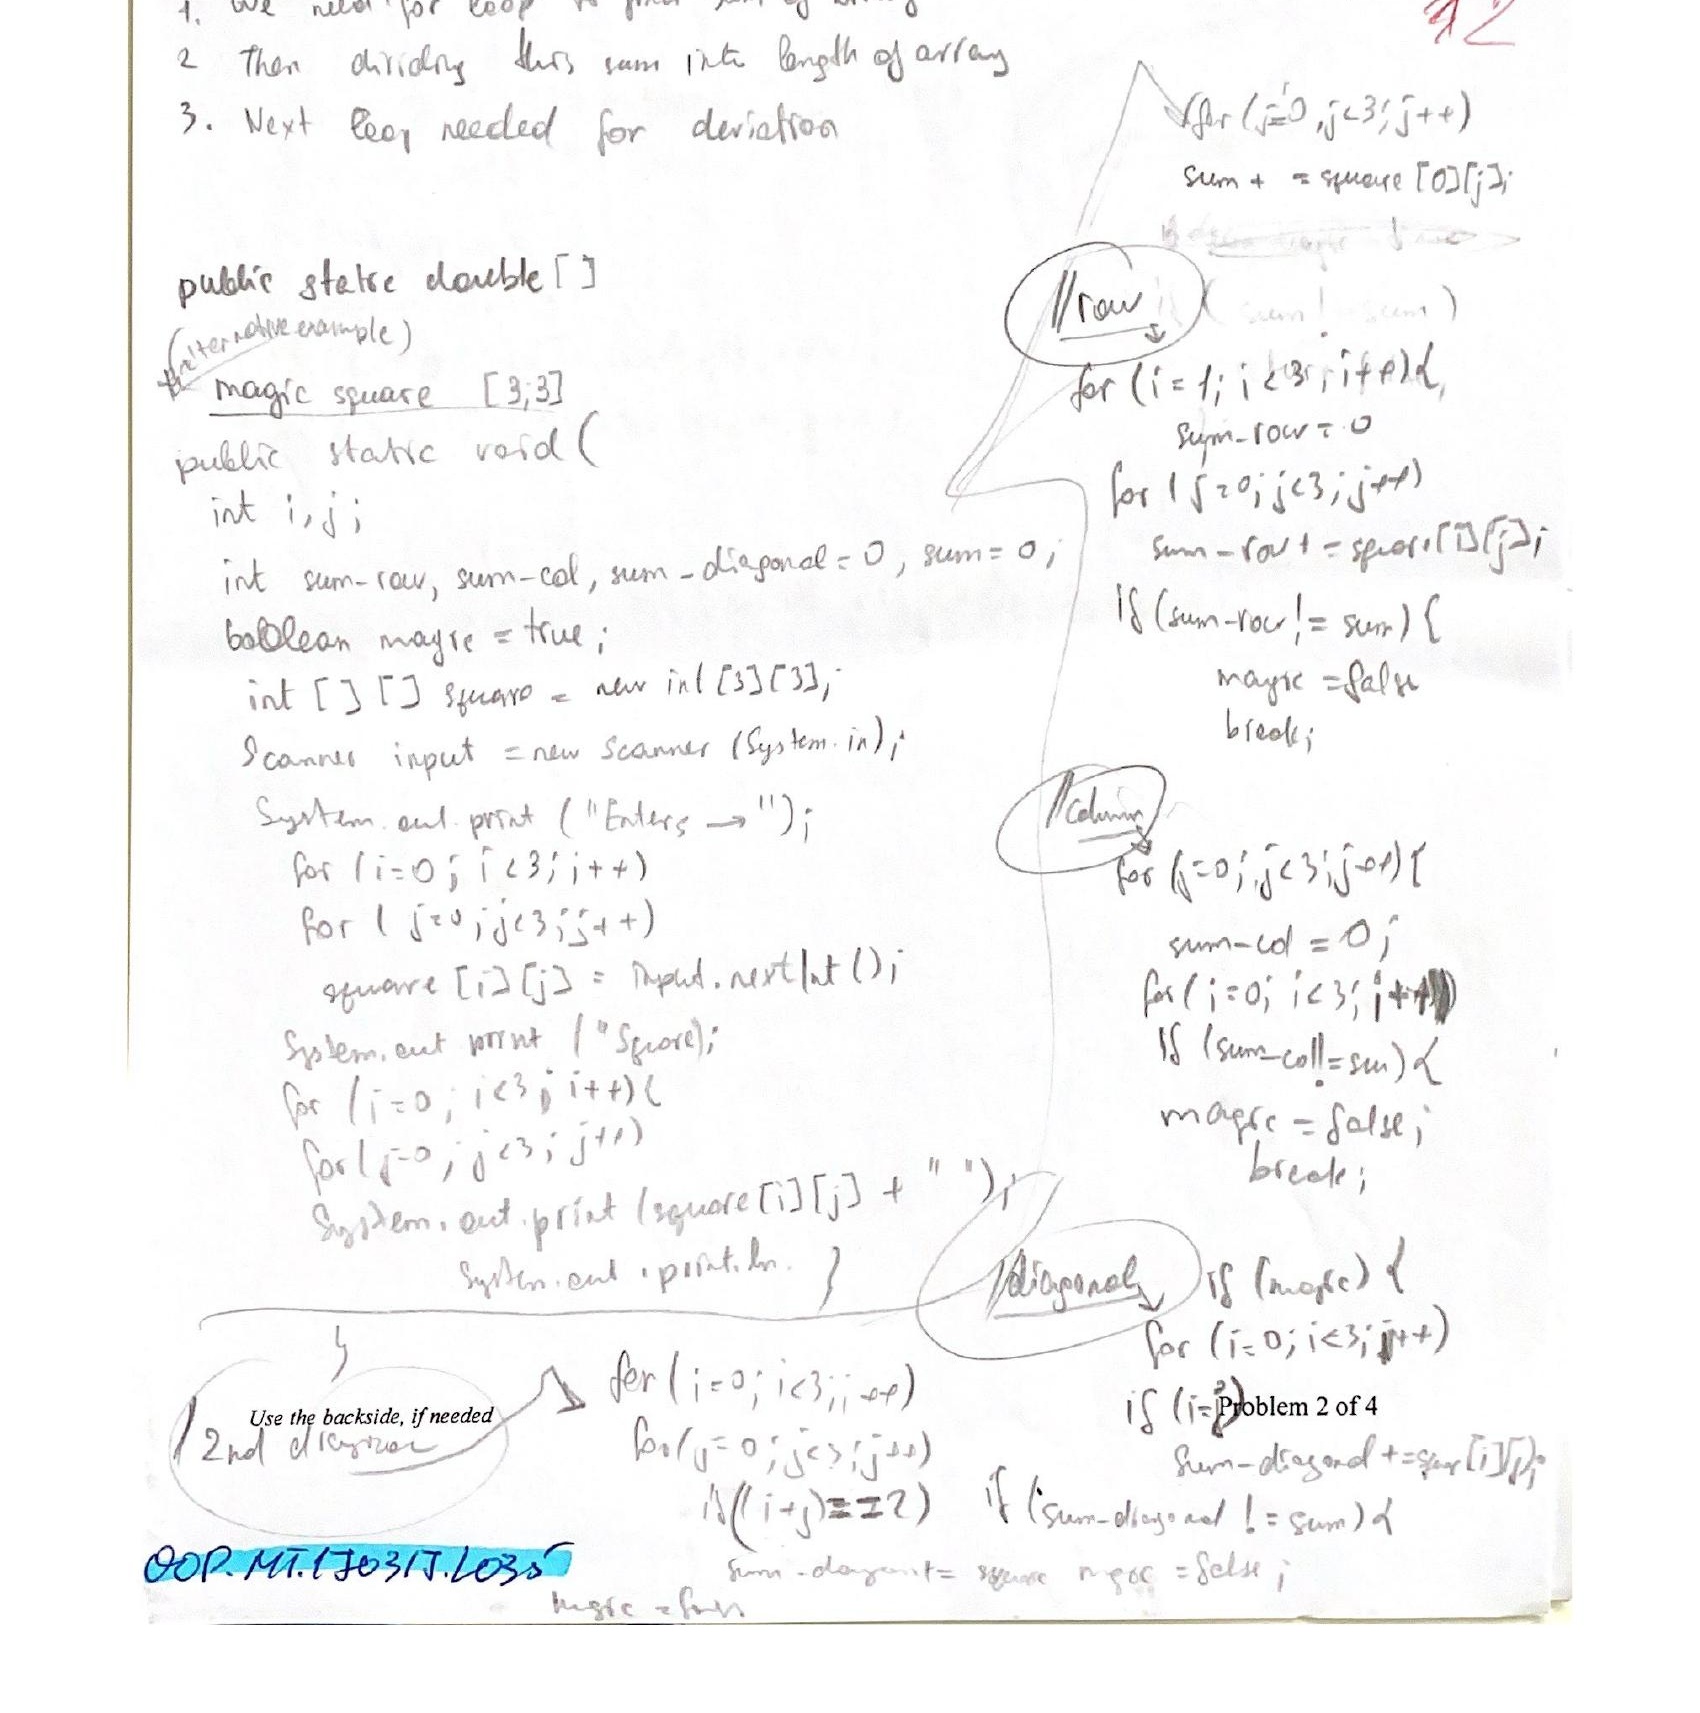 1. We need for loop to find sum of array
2 Then dividing this sum into length of array
3. Next loop needed for deviation
public static double [ ]
(alternative example)
magic square [3;3]
public static void (
int i, j ;
int sum-row, sum-col, sum-diagonal = 0, sum = 0 ;
boolean magic = true ;
int [ ] [ ] square = new int [3] [3] ;
Scanner input = new Scanner (System.in) ;
System.out.print ("Enters → ") ;
for (i=0 ; i <3 ; i++)
for ( j=0 ; j<3 ; j++)
square [i] [j] = input.nextInt () ;
System.out print ("Square) ;
for (i=0 ; i<3 ; i++) {
for (j=0 ; j<3 ; j++)
System.out.print (square [i] [j] + " ") ;
System.out.println. }
for (j=0 , j<3 ; j++)
sum + = square [0] [j] ;
//row
for (i = 1; i <3 ; i++) {
sum-row = 0
for ( j=0; j<3 ; j++)
sum-row + = square [i] [j] ;
if (sum-row != sum) {
magic = false
break ;
//column
for (j=0 ; j<3 ; j++) {
sum-col = 0 ;
for (i=0; i<3 ; i++)
if (sum-col != sum) {
magic = false ;
break ;
//diagonal
if (magic) {
for (i=0; i<3 ; j++)
if (i=j)
sum-diagonal += square [i] [j] ;
if (sum-diagonal != sum) {
magic = false ;
//2nd diagonal
for (i=0; i<3 ; i++)
for (j=0 ; j<3 ; j++)
if ((i+j) == 2)
sum-diagonal += square
magic = false
Use the backside, if needed
Problem 2 of 4
OOP.MT.170317.L035
92